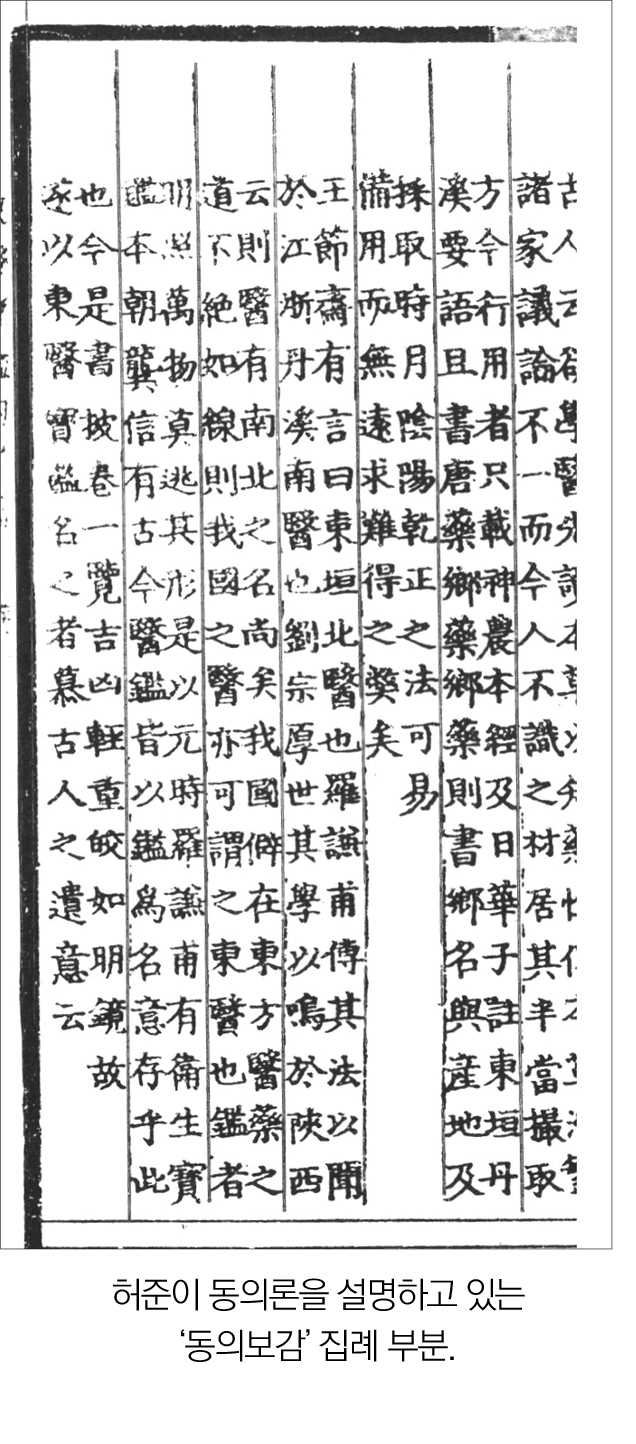 古人云欲學醫先讀本草以知藥性但本草浩繁
諸家議論不一而今人不識之材居其半當撮取
方今行用者只載神農本經及日華子註東垣丹
溪要語且書唐藥鄕藥鄕藥則書鄕名與産地及
採取時月陰陽乾正之法可易
備用而無遠求難得之獘矣
王節齋有言曰東垣北醫也羅謙甫傳其法以聞
於江浙丹溪南醫也劉宗厚世其學以鳴於陝西
云則醫有南北之名尚矣我國僻在東方醫藥之
道不絶如線則我國之醫亦可謂之東醫也鑑者
明照萬物莫逃其形是以元時羅謙甫有衛生寶
鑑本朝龔信有古今醫鑑皆以鑑爲名意存乎此
也今是書披卷一覽吉凶輕重皎如明鏡故
遂以東醫寶鑑名之者慕古人之遺意云
허준이 동의론을 설명하고 있는
‘동의보감’ 집례 부분.